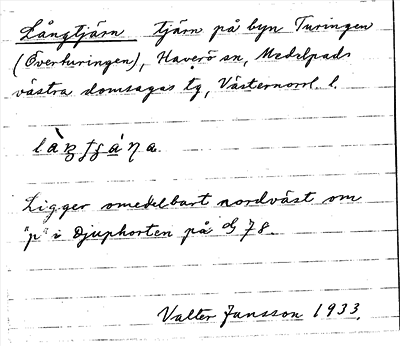 Långtjärn tjärn på byn Turingen
(Överturingen), Haverö sn, Medelpads
västra domsagas tg, Västernorrl. l.
Ligger omedelbart nordväst om
"p" i Djuphorten på 78.
Valter Jansson 1933.